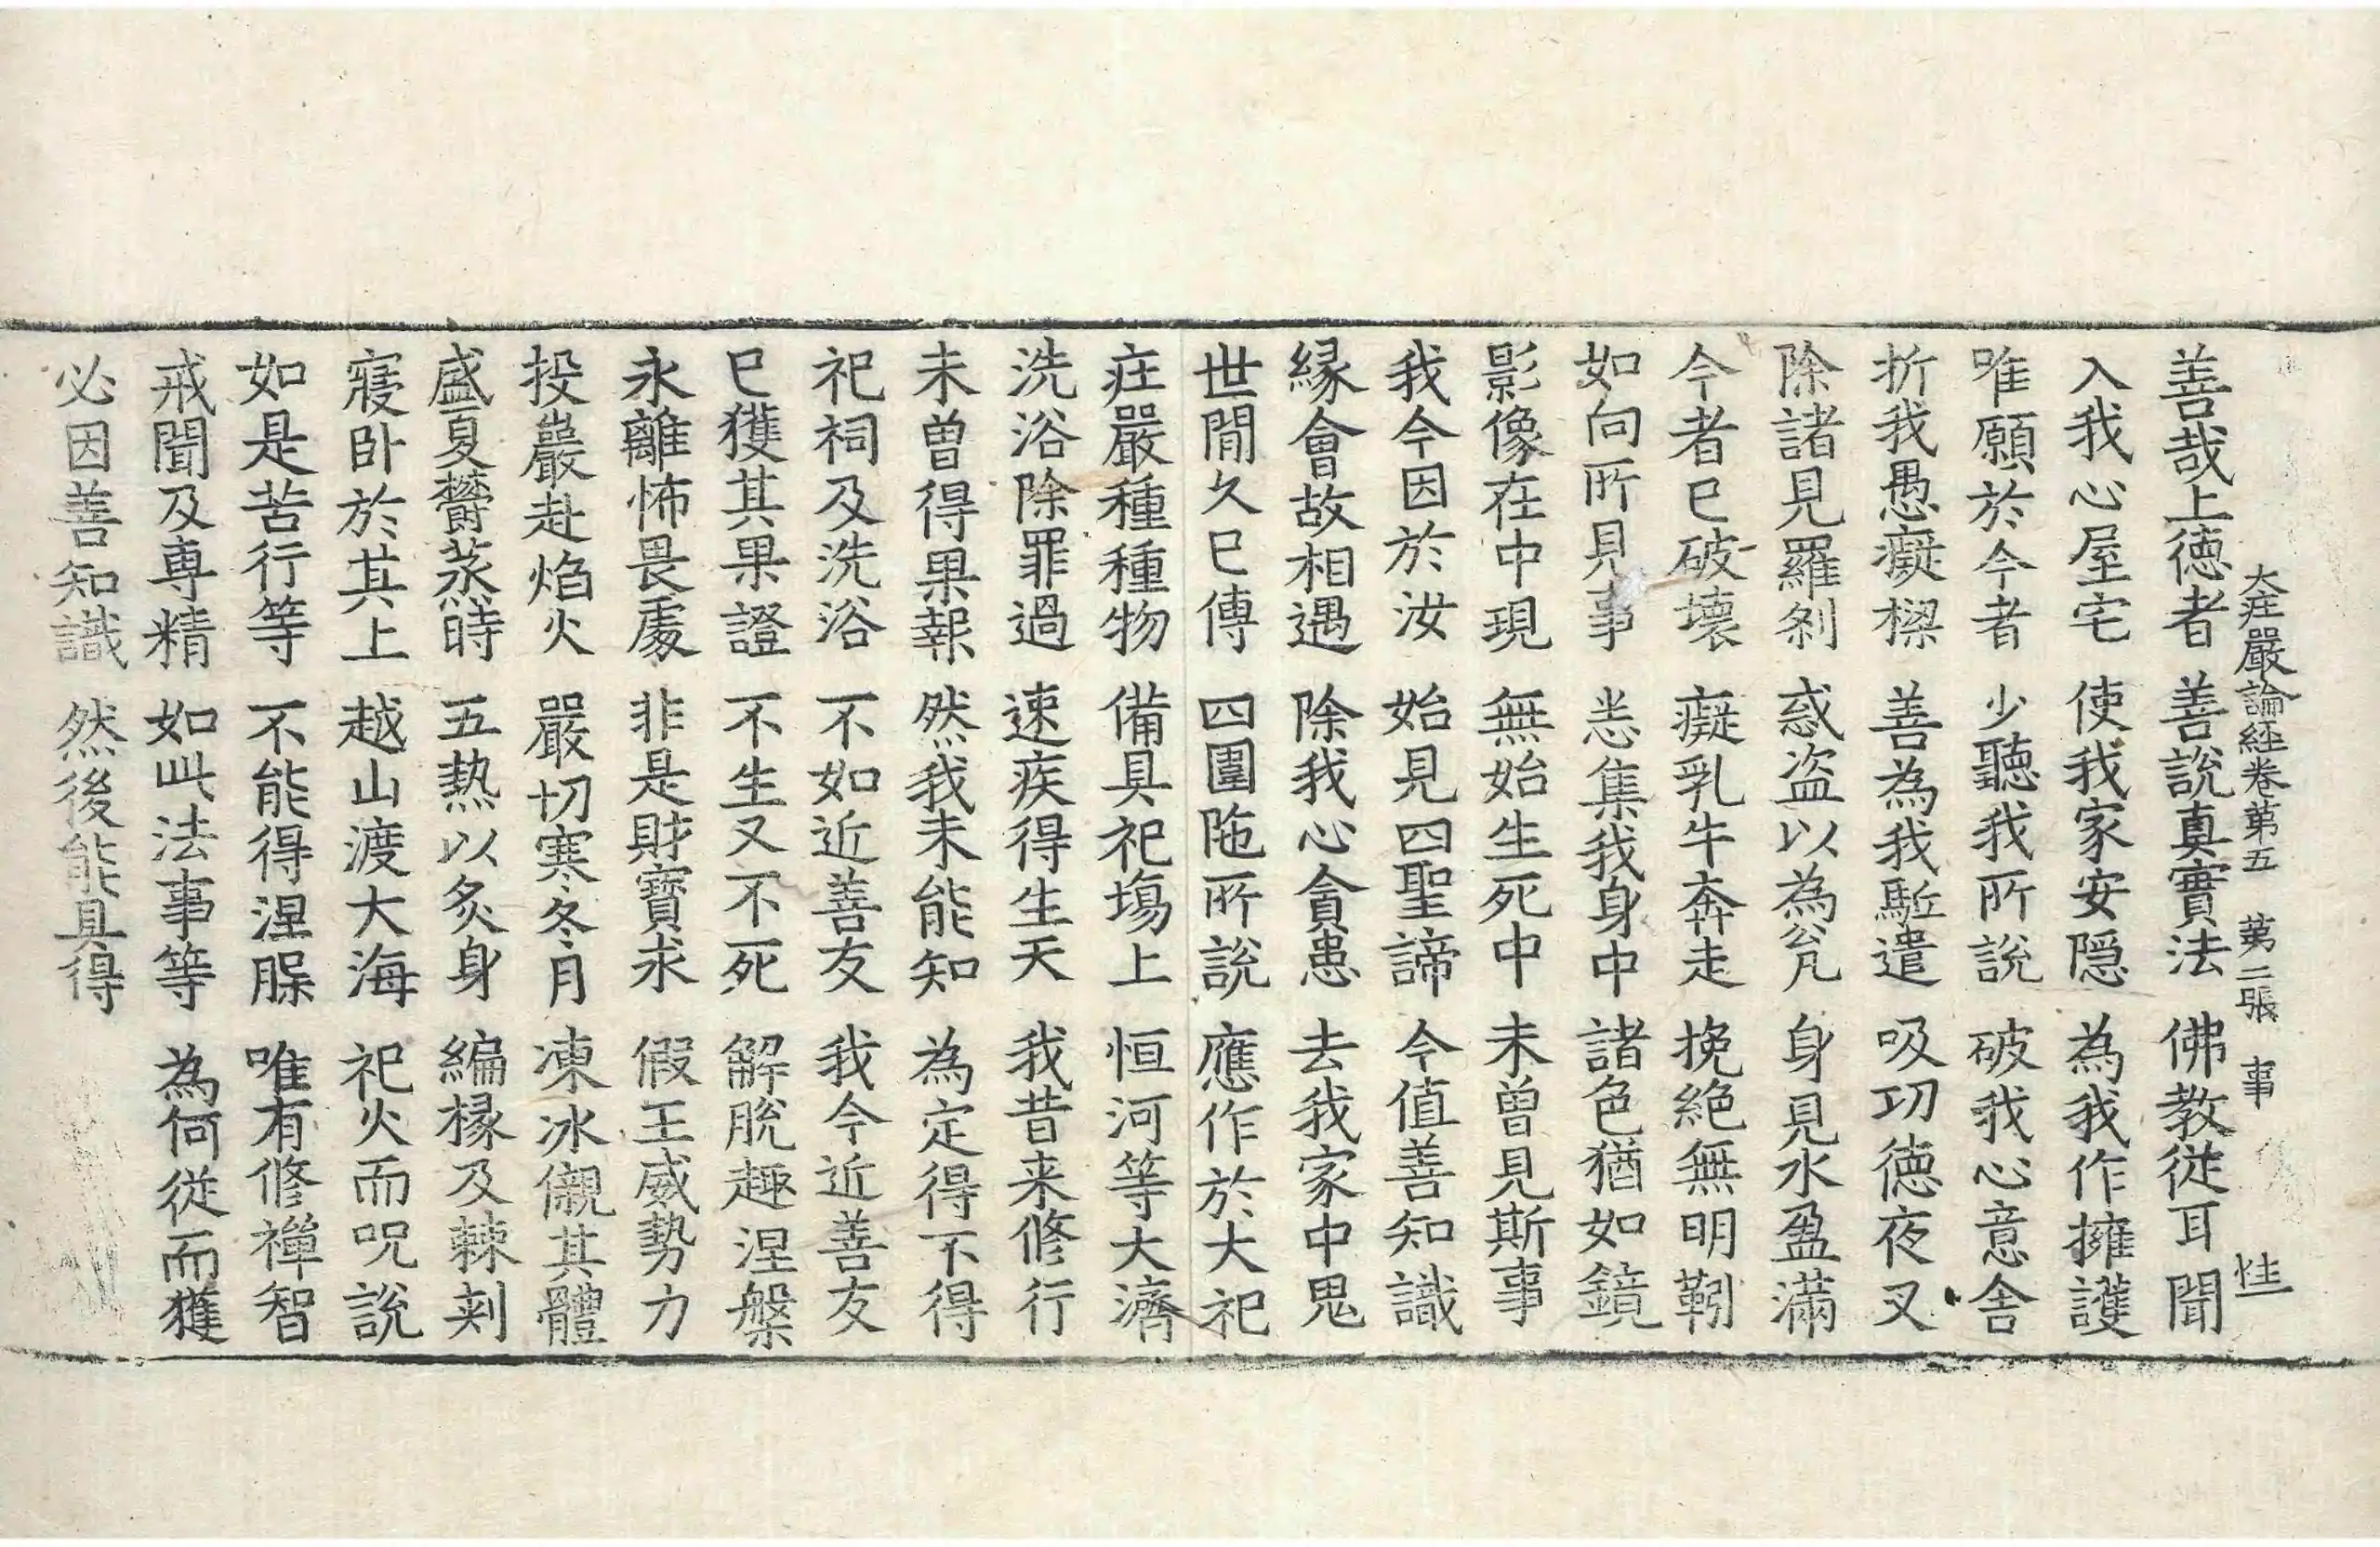 大庄嚴論経卷第五 第二張 事
善哉上徳者 善說真實法 佛教従耳聞
入我心屋宅 使我家安隱 為我作擁護
唯願於今者 少聽我所說 破我心意舍
折我愚癡樑 善為我駈遣 吸功徳夜叉
除諸見羅剎 惑盜以為瓮 身見水盈滿
今者已破壊 癡乳牛奔走 挽絶無明靷
如向所見事 悉集我身中 諸色猶如鏡
影像在中現 無始生死中 未曽見斯事
我今因於汝 始見四聖諦 今值善知識
縁會故相遇 除我心貪患 去我家中鬼
世間久已傳 四圍陁所說 應作於大祀
庄嚴種種物 備具祀塲上 恒河等大濟
洗浴除罪過 速疾得生天 我昔来修行
未曽得果報 然我未能知 為定得不得
祀祠及洗浴 不如近善友 我今近善友
已獲其果證 不生又不死 解脫趣涅槃
永離怖畏處 非是財寶求 假王威勢力
投巖赴焰火 嚴切寒冬月 凍冰儭其體
盛夏欝蒸時 五熱以炙身 編椽及棘刾
寢卧於其上 越山渡大海 祀火而呪說
如是苦行等 不能得涅槃 唯有修禅智
戒聞及専精 如此法事等 為何従而獲
必因善知識 然後能具得